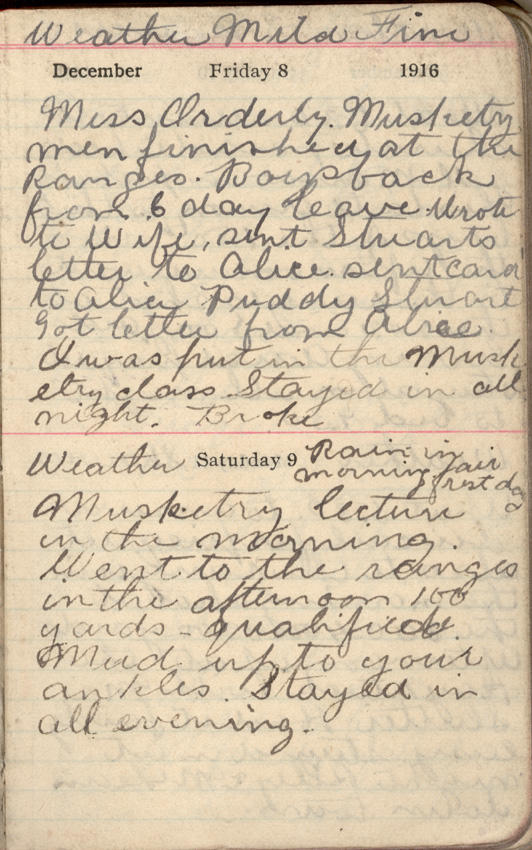 Weather Mild Fine
December Friday 8 1916
Mess Orderly. Musketry
men finished at the
Ranges. Boys back
from 6 day leave. Wrote
to Wife, sent Stuarts
letter to Alice. sent card
to Alice Puddy Stuart
Got letter from Alice.
I was put in the Musk
etry class. Stayed in all
night. Broke
Weather Saturday 9 Rain in
morning fair
rest day
Musketry lecture
in the morning.
Went to the ranges
in the afternoon 100
yards - qualified.
Mud up to your
ankles. Stayed in
all evening.